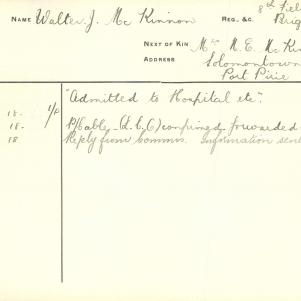 NAME Walter J. Mc Kinnon REG., &C. 8th Fiel
Brig
NEXT OF KIN Mrs N. E. Mc Ki
ADDRESS Solomontown
Port Pirie
1/8 "Admitted to Hospital etc".
18.
18. P/Cable (L.C.C) confirmed forwarded
18 Reply from Commn. Information sent